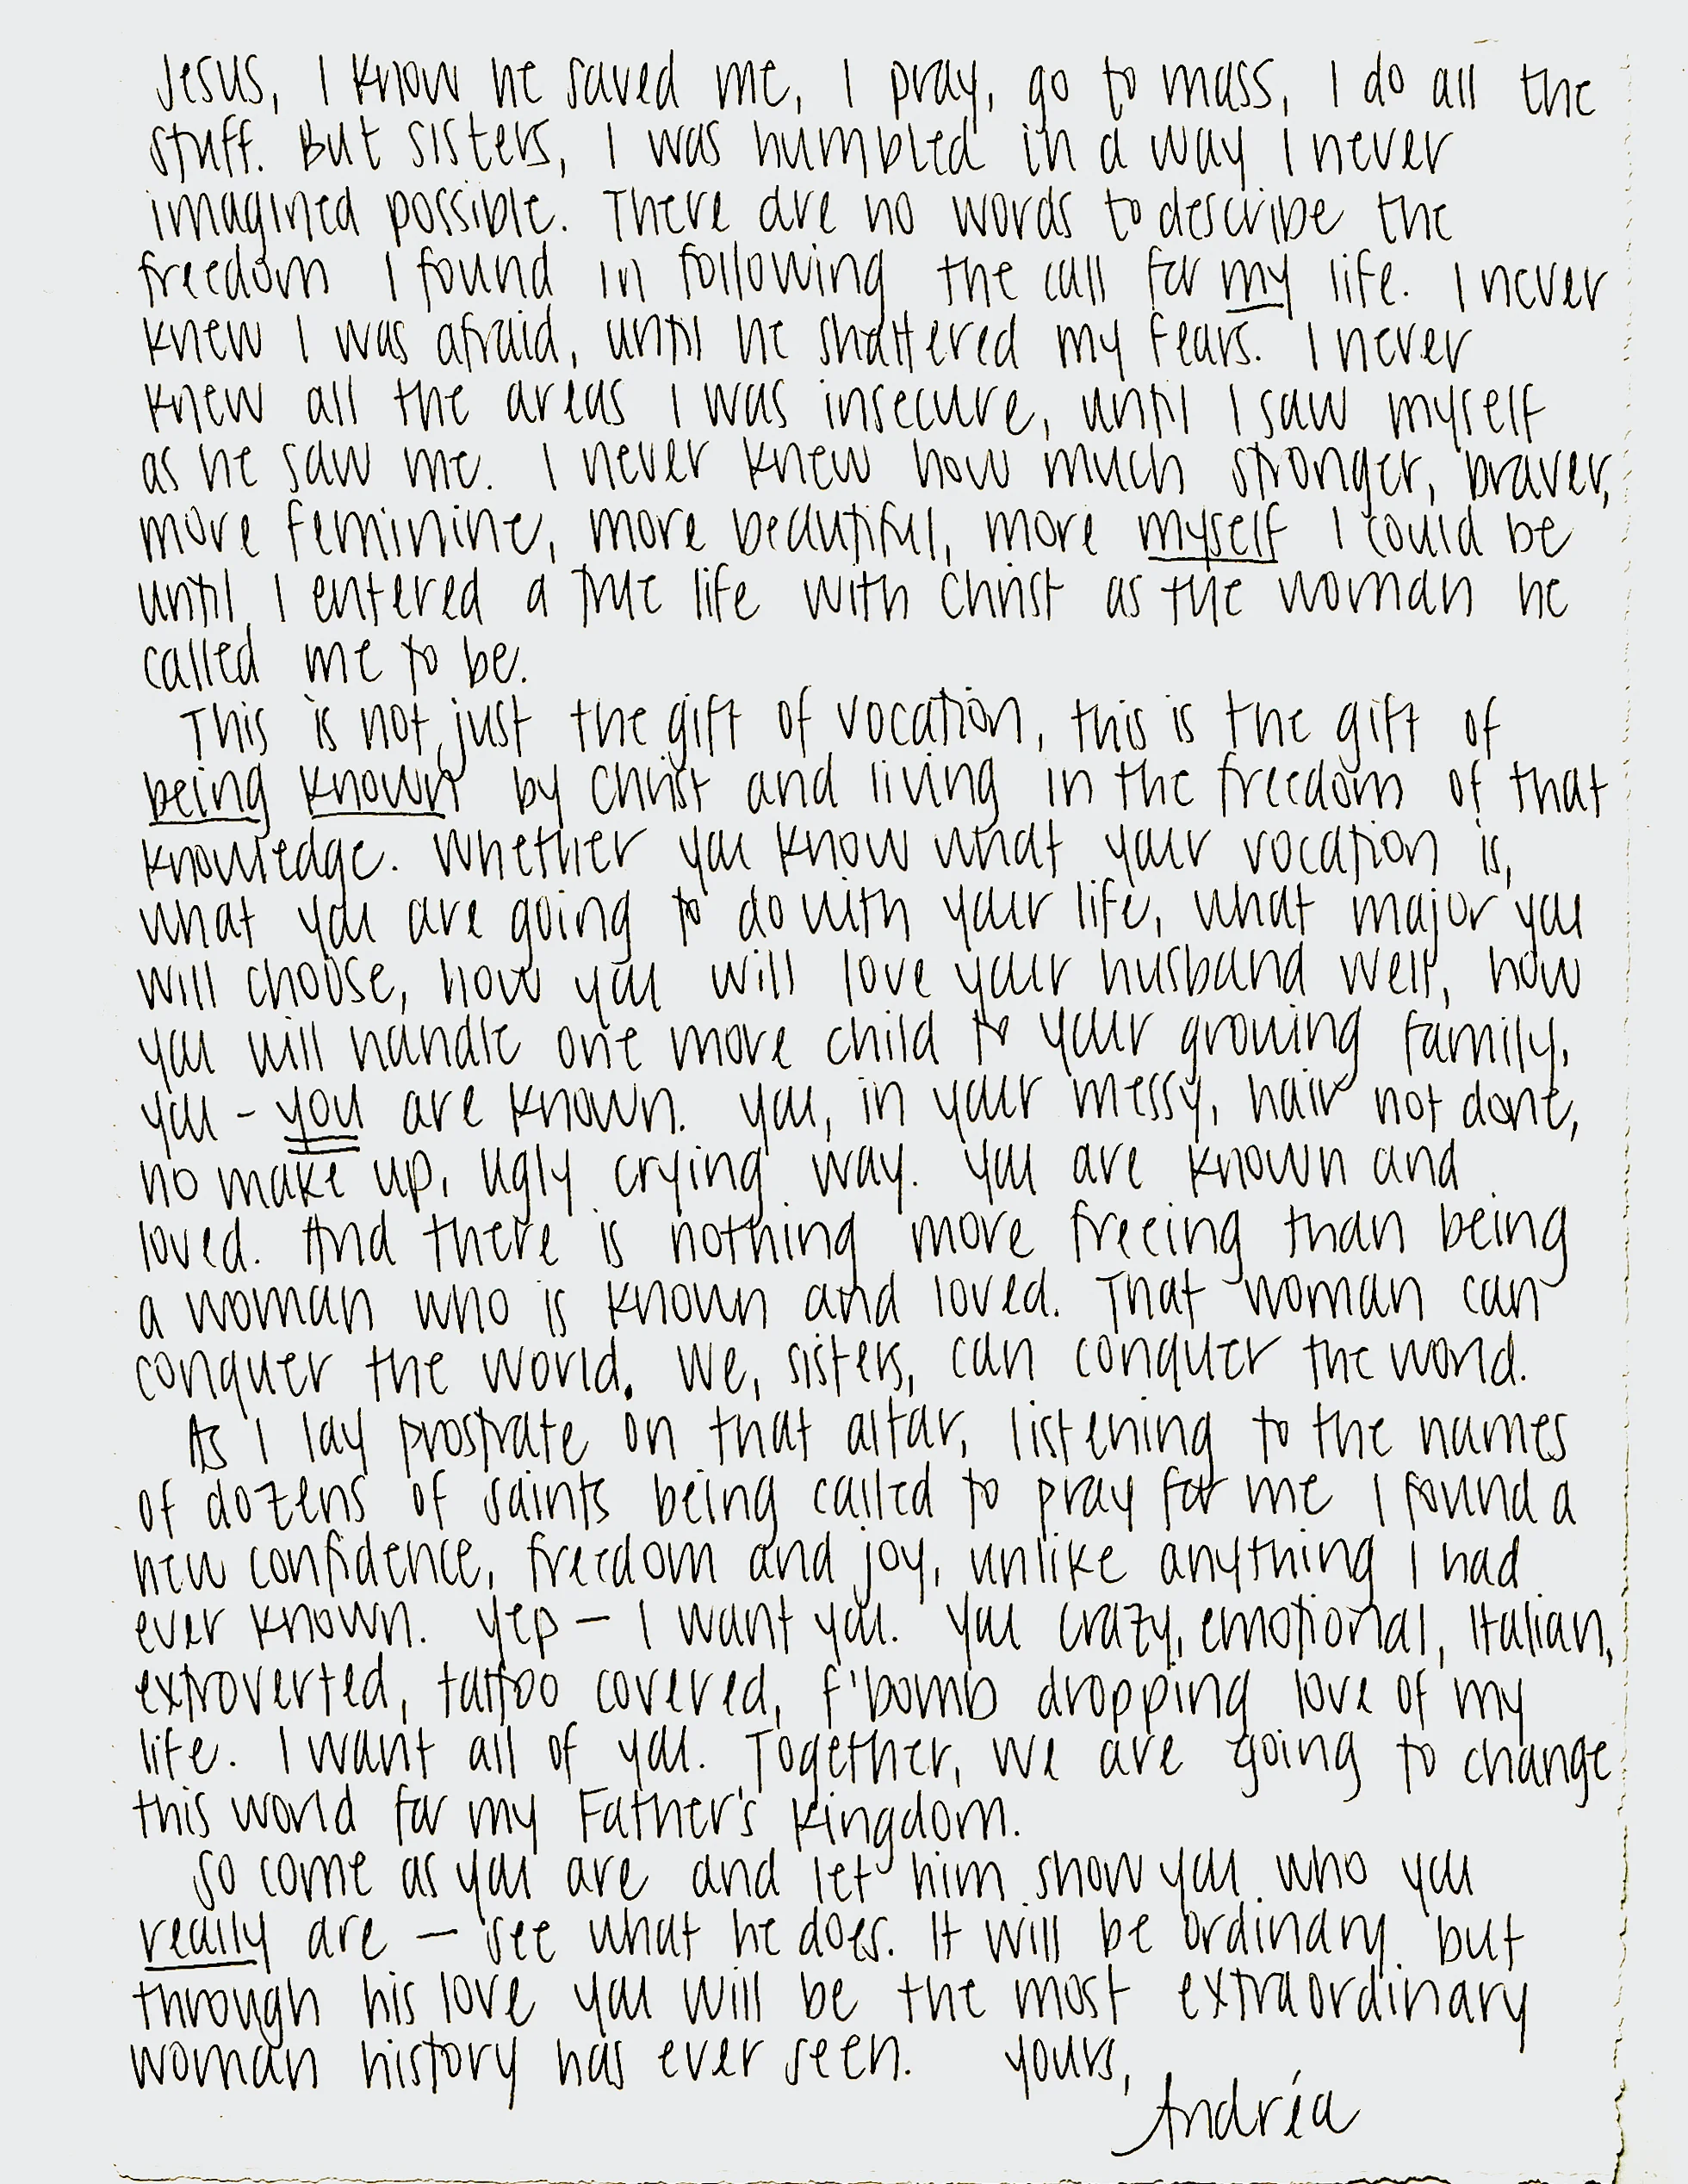 Jesus, I know he saved me, I pray, go to mass, I do all the
stuff. But sisters, I was humbled in a way I never
imagined possible. There are no words to describe the
freedom I found in following the call for my life. I never
knew I was afraid, until he shattered my fears. I never
knew all the areas I was insecure, until I saw myself
as he saw me. I never knew how much stronger, braver,
more feminine, more beautiful, more myself I could be
until I entered a true life with Christ as the woman he
called me to be.
This is not just the gift of vocation, this is the gift of
being known by Christ and living in the freedom of that
knowledge. Whether you know what your vocation is,
what you are going to do with your life, what major you
will choose, how you will love your husband well, how
you will handle one more child to your growing family,
you - you are known. You, in your messy, hair not done,
no make up, ugly crying way. You are known and
loved. And there is nothing more freeing than being
a woman who is known and loved. That woman can
conquer the world. We, sisters, can conquer the world.
As I lay prostrate on that altar, listening to the names
of dozens of saints being called to pray for me I found a
new confidence, freedom and joy, unlike anything I had
ever known. Yep - I want you. You crazy, emotional, Italian,
extroverted, tattoo covered, f'bomb dropping love of my
life. I want all of you. Together, we are going to change
this world for my Father's Kingdom.
So come as you are and let him show you who you
really are - see what he does. It will be ordinary but
through his love you will be the most extraordinary
woman history has ever seen. Yours,
Andréa